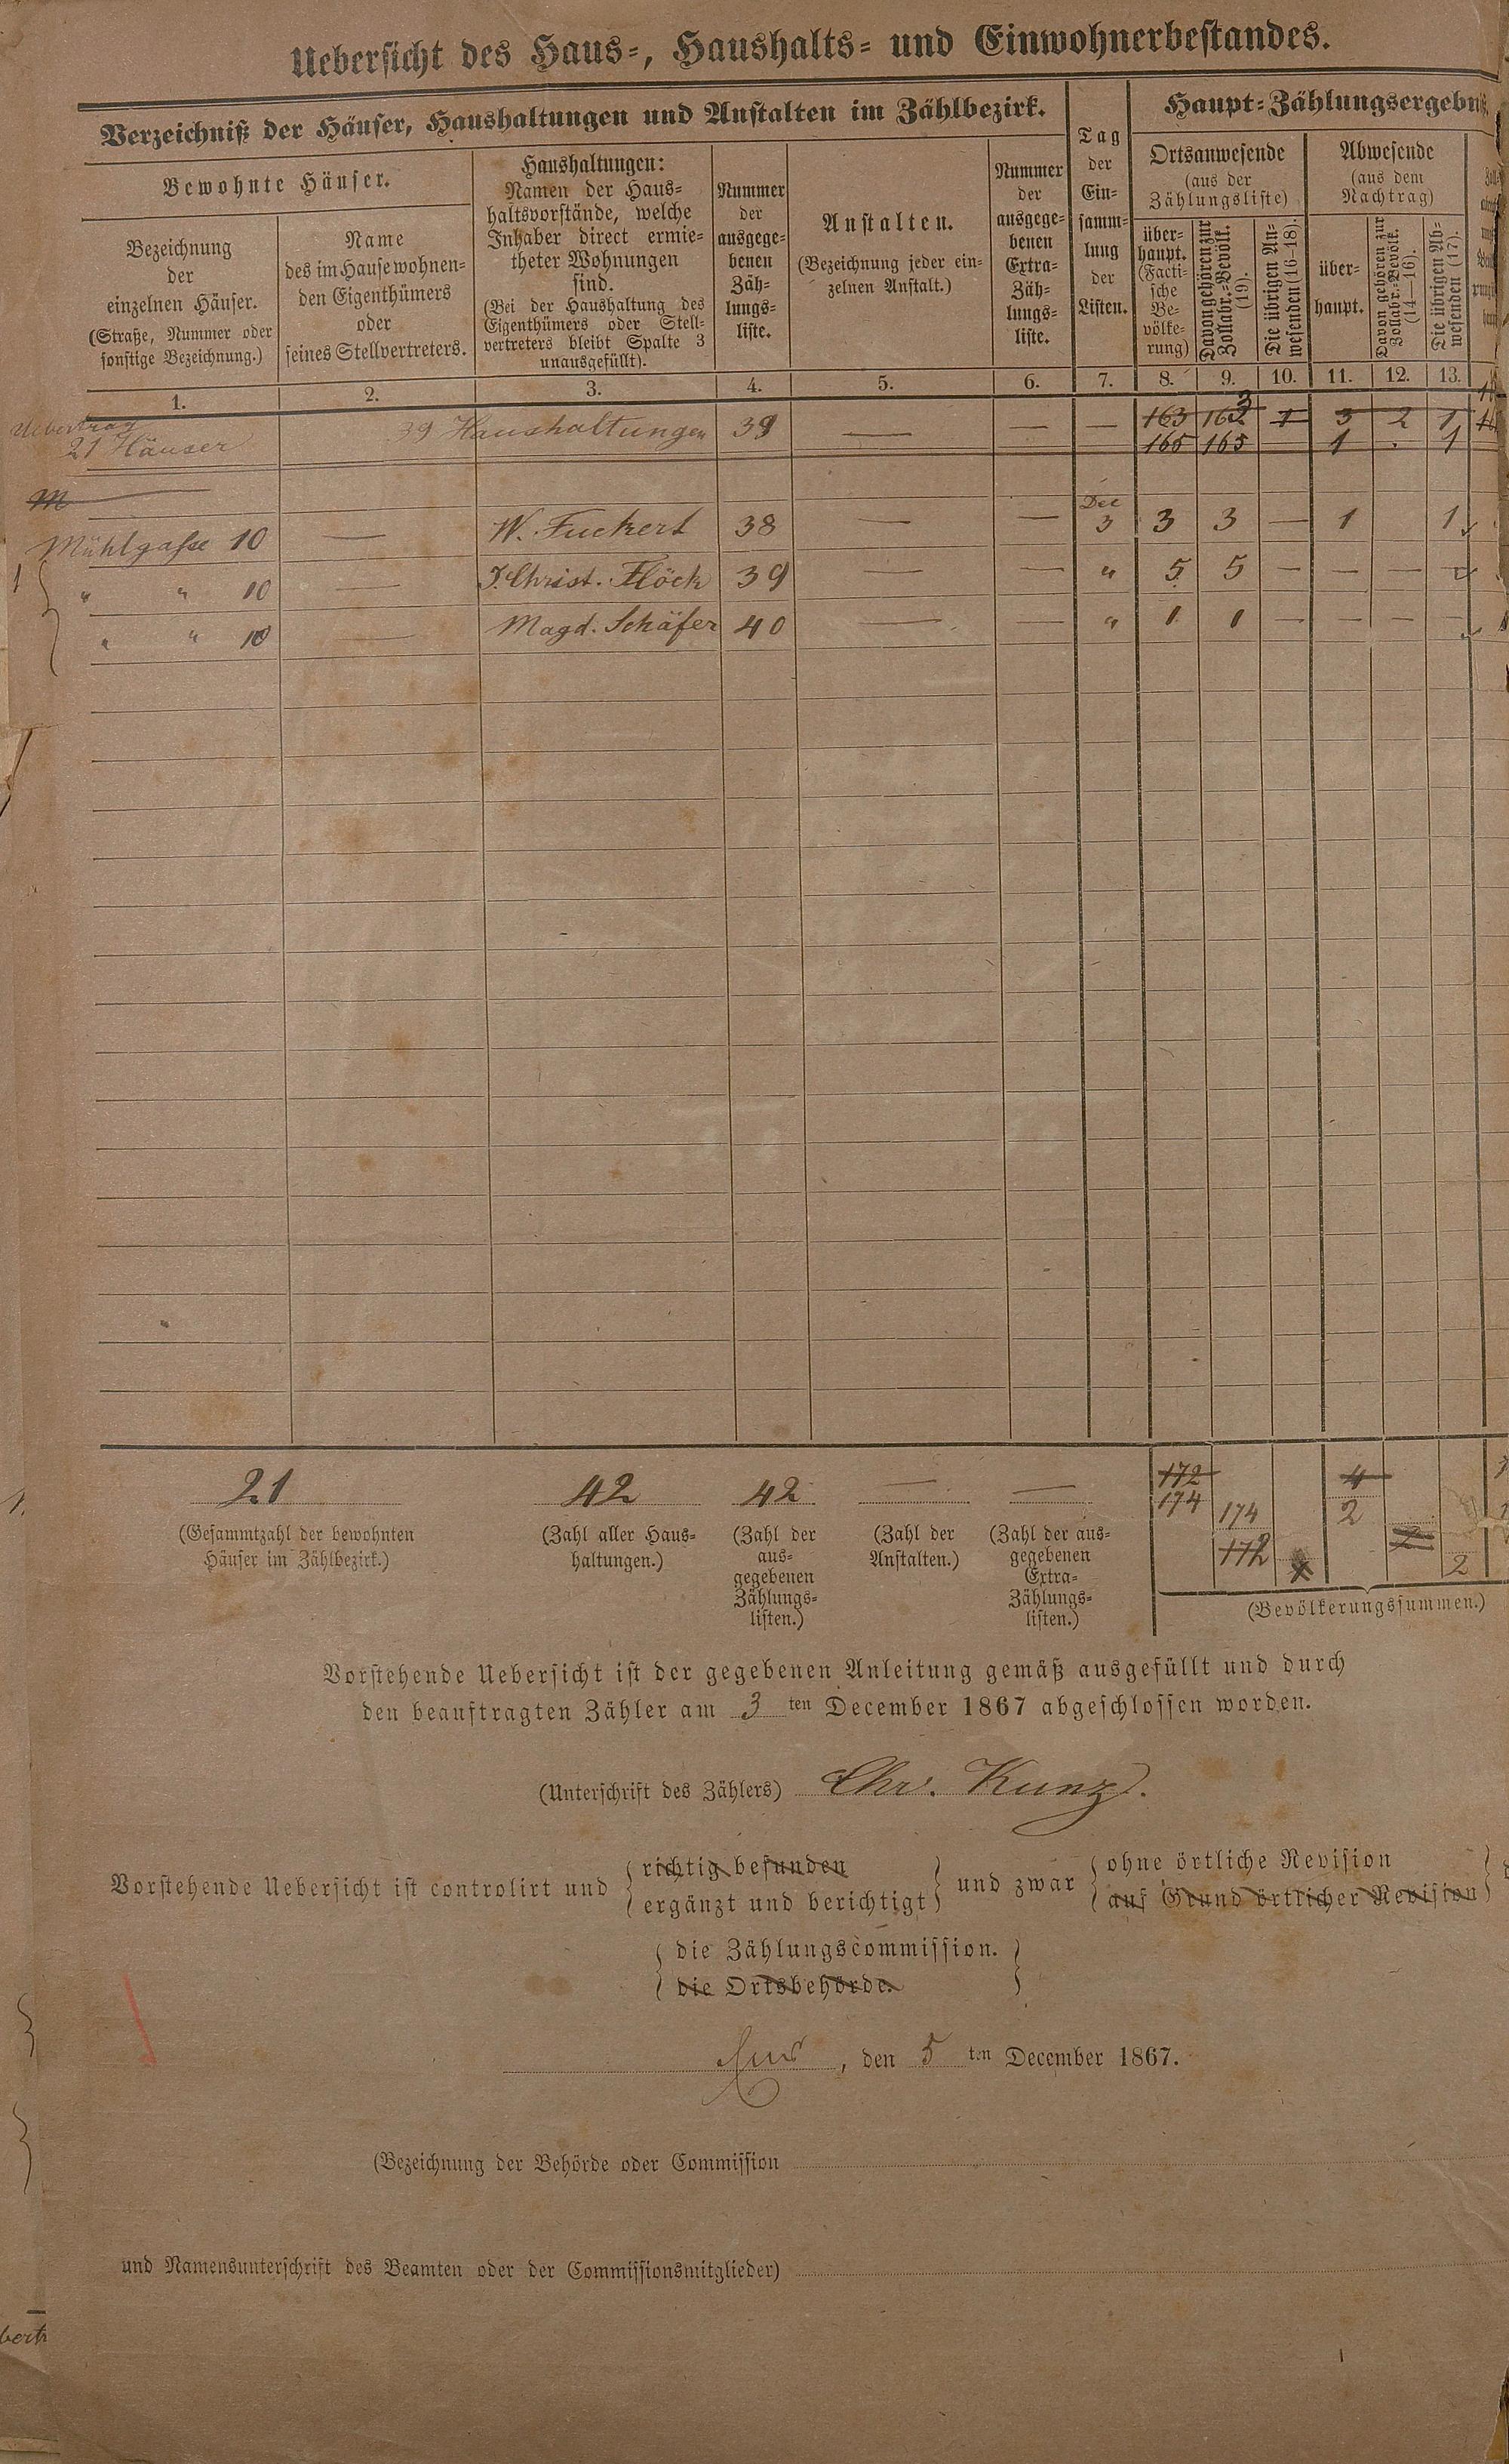 Uebersicht des Haus-, Haushalts- und Einwohnerbestandes.
Verzeichniß der Häuser, Haushaltungen und Anstalten im Zählbezirk.
Bewohnte Häuser.
Bezeichnung
der
einzelnen Häuser.
(Straße, Nummer oder
sonstige Bezeichnung.)
Name
des im Hause wohnen-
den Eigenthümers
oder
seines Stellvertreters.
Haushaltungen:
Namen der Haus-
haltsvorstände, welche
Inhaber direct ermie-
theter Wohnungen
sind.
(Bei der Haushaltung des
Eigenthümers oder Stell-
vertreters bleibt Spalte 3
unausgefüllt).
Nummer
der
ausgege-
benen
Zäh-
lungs-
liste.
Anstalten.
(Bezeichnung jeder ein-
zelnen Anstalt.)
Nummer
der
ausgege-
benen
Extra-
Zäh-
lungs-
liste.
Tag
der
Ein-
samm-
lung
der
Listen.
Haupt-Zählungsergebn
Ortsanwesende
(aus der
Zählungsliste)
über-
haupt.
(Facti-
sche
Be-
völke-
rung)
Davon gehören zur
Zollabr.-Bevölk.
(19).
Die übrigen An-
wesenden (16-18).
Abwesende
(aus dem
Nachtrag)
über-
haupt.
Davon gehören zur
Zollabr.-Bevölk.
(14-16).
Die übrigen Ab-
wesenden (17).
1. 2. 3. 4. 5. 6. 7. 8. 9. 10. 11. 12. 13.
Uebertrag
21 Häuser 39 Haushaltungen 39 — — — 163 162 1 3 2 1
3
165 165 1 . 1
M
Dec
Mühlgasse 10 — W. Fuckert 38 — — 3 3 3 — 1 1
" " 10 — J. Christ. Flöck 39 — — " 5 5 — — — —
" " 10 — Magd. Schäfer 40 — — " 1 1 — — — —
21 42 42 — — 172 4
174 174 2
172 2 2
(Gesammtzahl der bewohnten
Häuser im Zählbezirk.)
(Zahl aller Haus-
haltungen.)
(Zahl der
aus-
gegebenen
Zählungs-
listen.)
(Zahl der
Anstalten.)
(Zahl der aus-
gegebenen
Extra-
Zählungs-
listen.)
(Bevölkerungssummen.)
Vorstehende Uebersicht ist der gegebenen Anleitung gemäß ausgefüllt und durch
den beauftragten Zähler am 3 ten December 1867 abgeschlossen worden.
(Unterschrift des Zählers) Chr. Kunz.
Vorstehende Uebersicht ist controlirt und { richtig befunden
ergänzt und berichtigt } und zwar { ohne örtliche Revision
auf Grund örtlicher Revision }
{ die Zählungscommission.
die Ortsbehörde. }
Ems, den 5 ten December 1867.
(Bezeichnung der Behörde oder Commission
und Namensunterschrift des Beamten oder der Commissionsmitglieder)